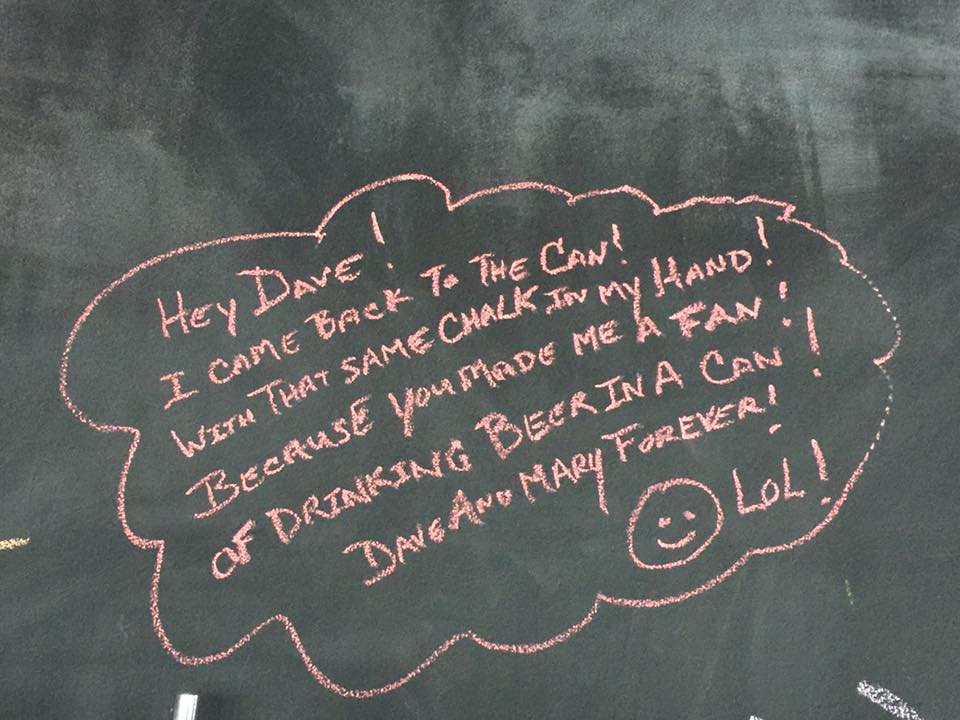 HEY DAVE!
I CAME BACK TO THE CAN!
WITH THAT SAME CHALK IN MY HAND!
BECAUSE YOU MADE ME A FAN!
OF DRINKING BEER IN A CAN!
DAVE AND MARY FOREVER!
LOL!